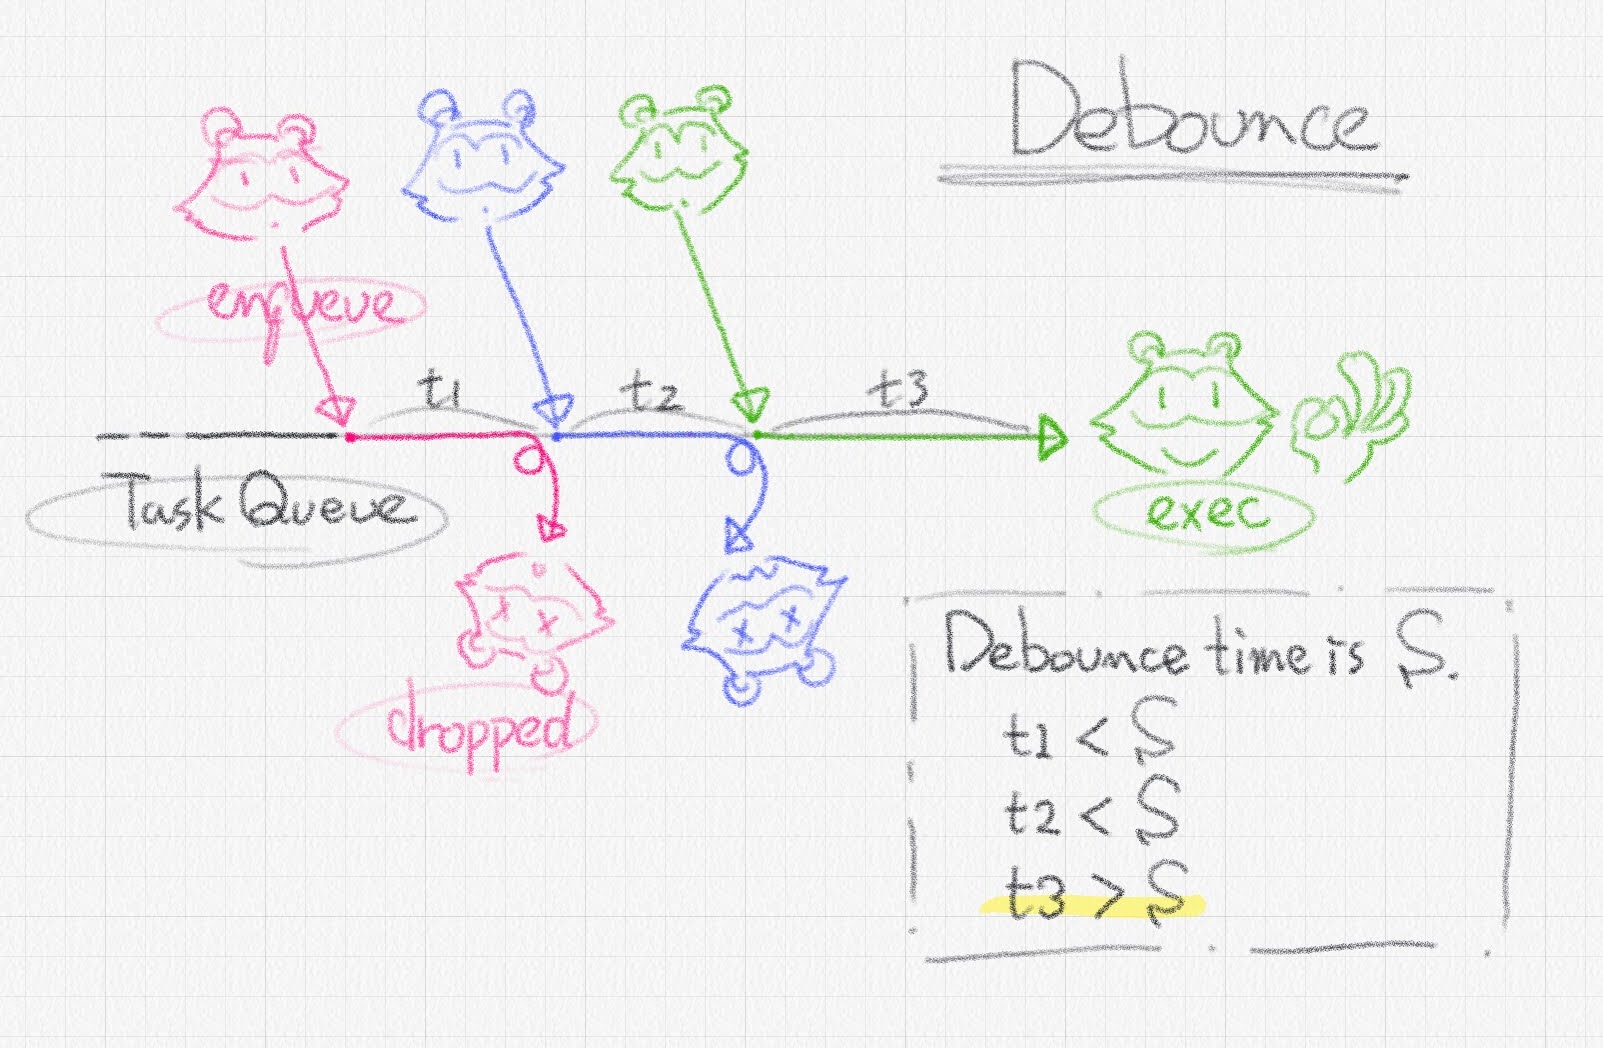 Debounce
enqueue
t1
t2
t3
Task Queue
exec
dropped
Debounce time is S.
t1 < S
t2 < S
t3 > S